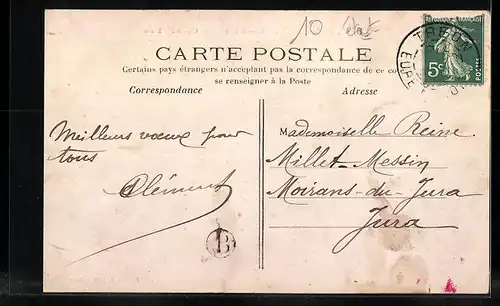 10
CARTE POSTALE
Certains pays étrangers n'acceptant pas la correspondance de ce
se renseigner à la Poste
Correspondance
Adresse
RÉPUBLIQUE FRANÇAISE
5c
POSTES
EURE
Meilleurs voeux pour
tous
Clément
B
Mademoiselle Reine
Millet-Messin
Moirans-du-Jura
Jura